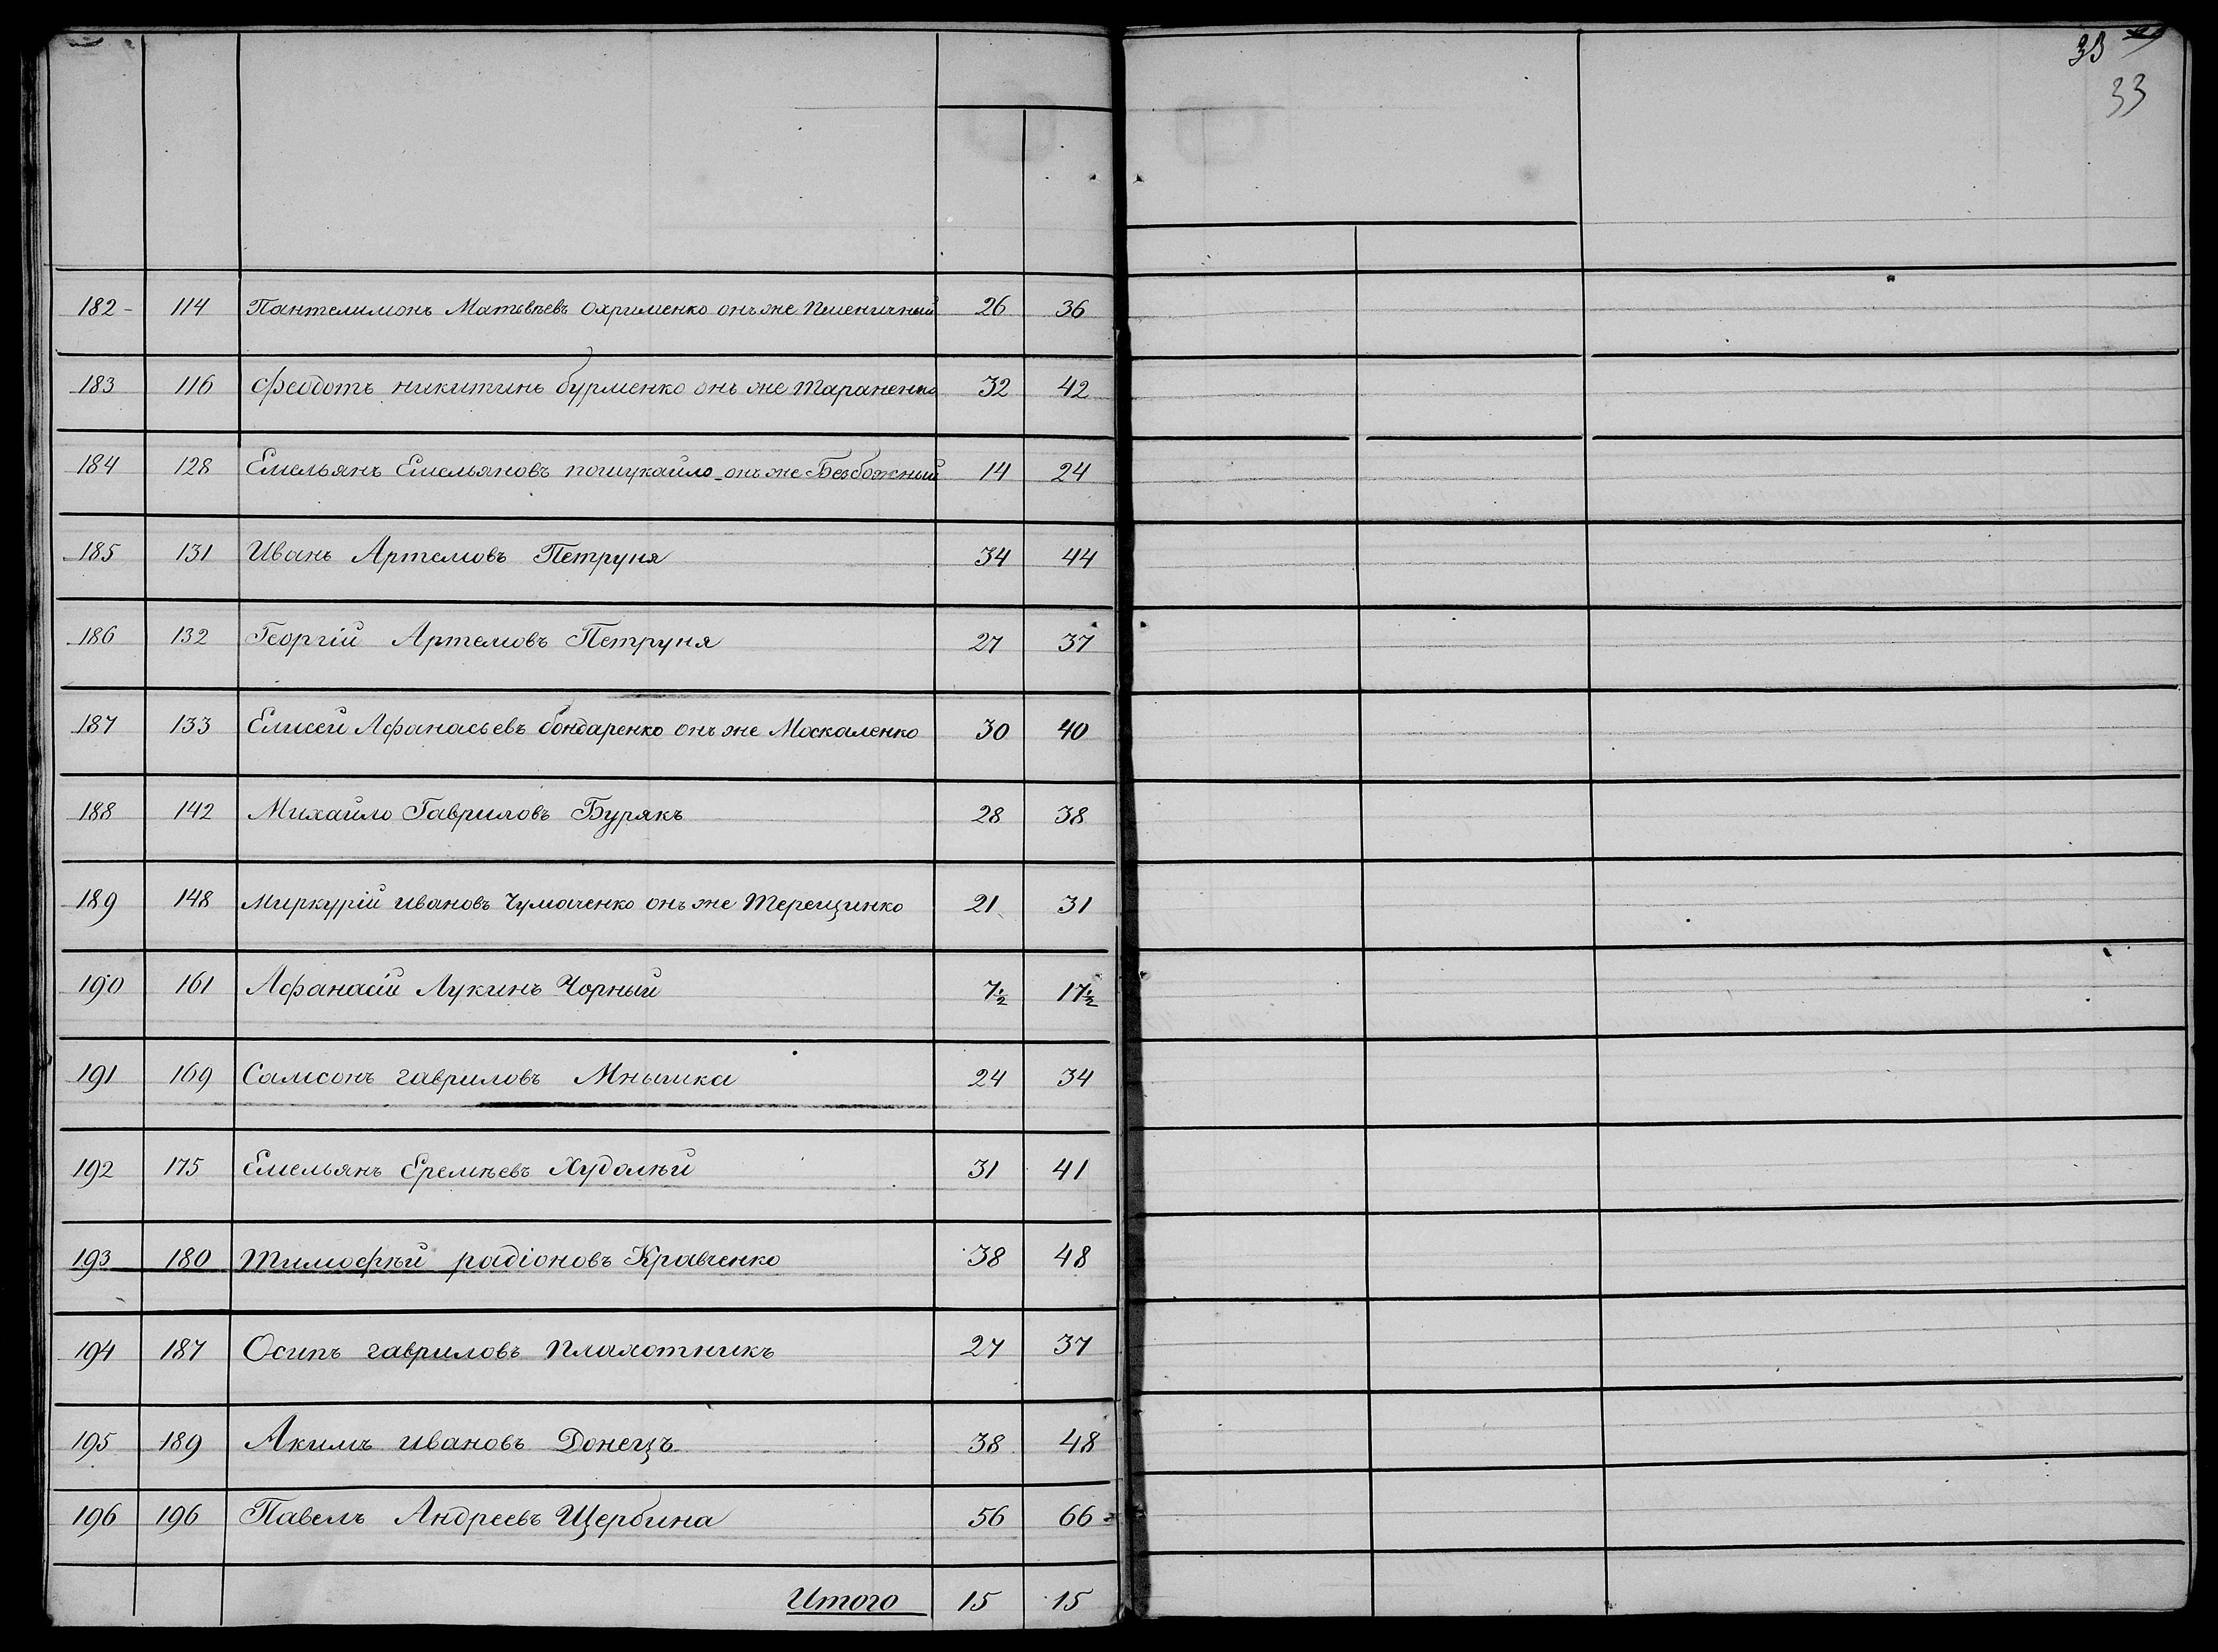 33
33
182 114 Пантелимонъ Матвѣевъ Охрименко онъ же Пшеничный 26 36
183 116 Феодотъ никитинъ бурменко онъ же Тараненко 32 42
184 128 Емельянъ Емельяновъ пошукайло онъ же Безбожный 14 24
185 131 Иванъ Артемовъ Петруня 34 44
186 132 Георгій Артемовъ Петруня 27 37
187 133 Елисей Афанасьевъ бондаренко онъ же Москаленко 30 40
188 142 Михайло Гавриловъ Бурякъ 28 38
189 148 Миркурій ивановъ Чумаченко онъ же Терещинко 21 31
190 161 Афанасій Лукинъ Чорный 7½ 17½
191 169 Самсонъ гавриловъ Мнышка 24 34
192 175 Емельянъ Еремѣевъ Худолѣй 31 41
193 180 Тимофѣй радіоновъ Кравченко 38 48
194 187 Осипъ гавриловъ Плахотникъ 27 37
195 189 Акимъ ивановъ Донецъ 38 48
196 196 Павелъ Андреевъ Щербина 56 66
Итого 15 15